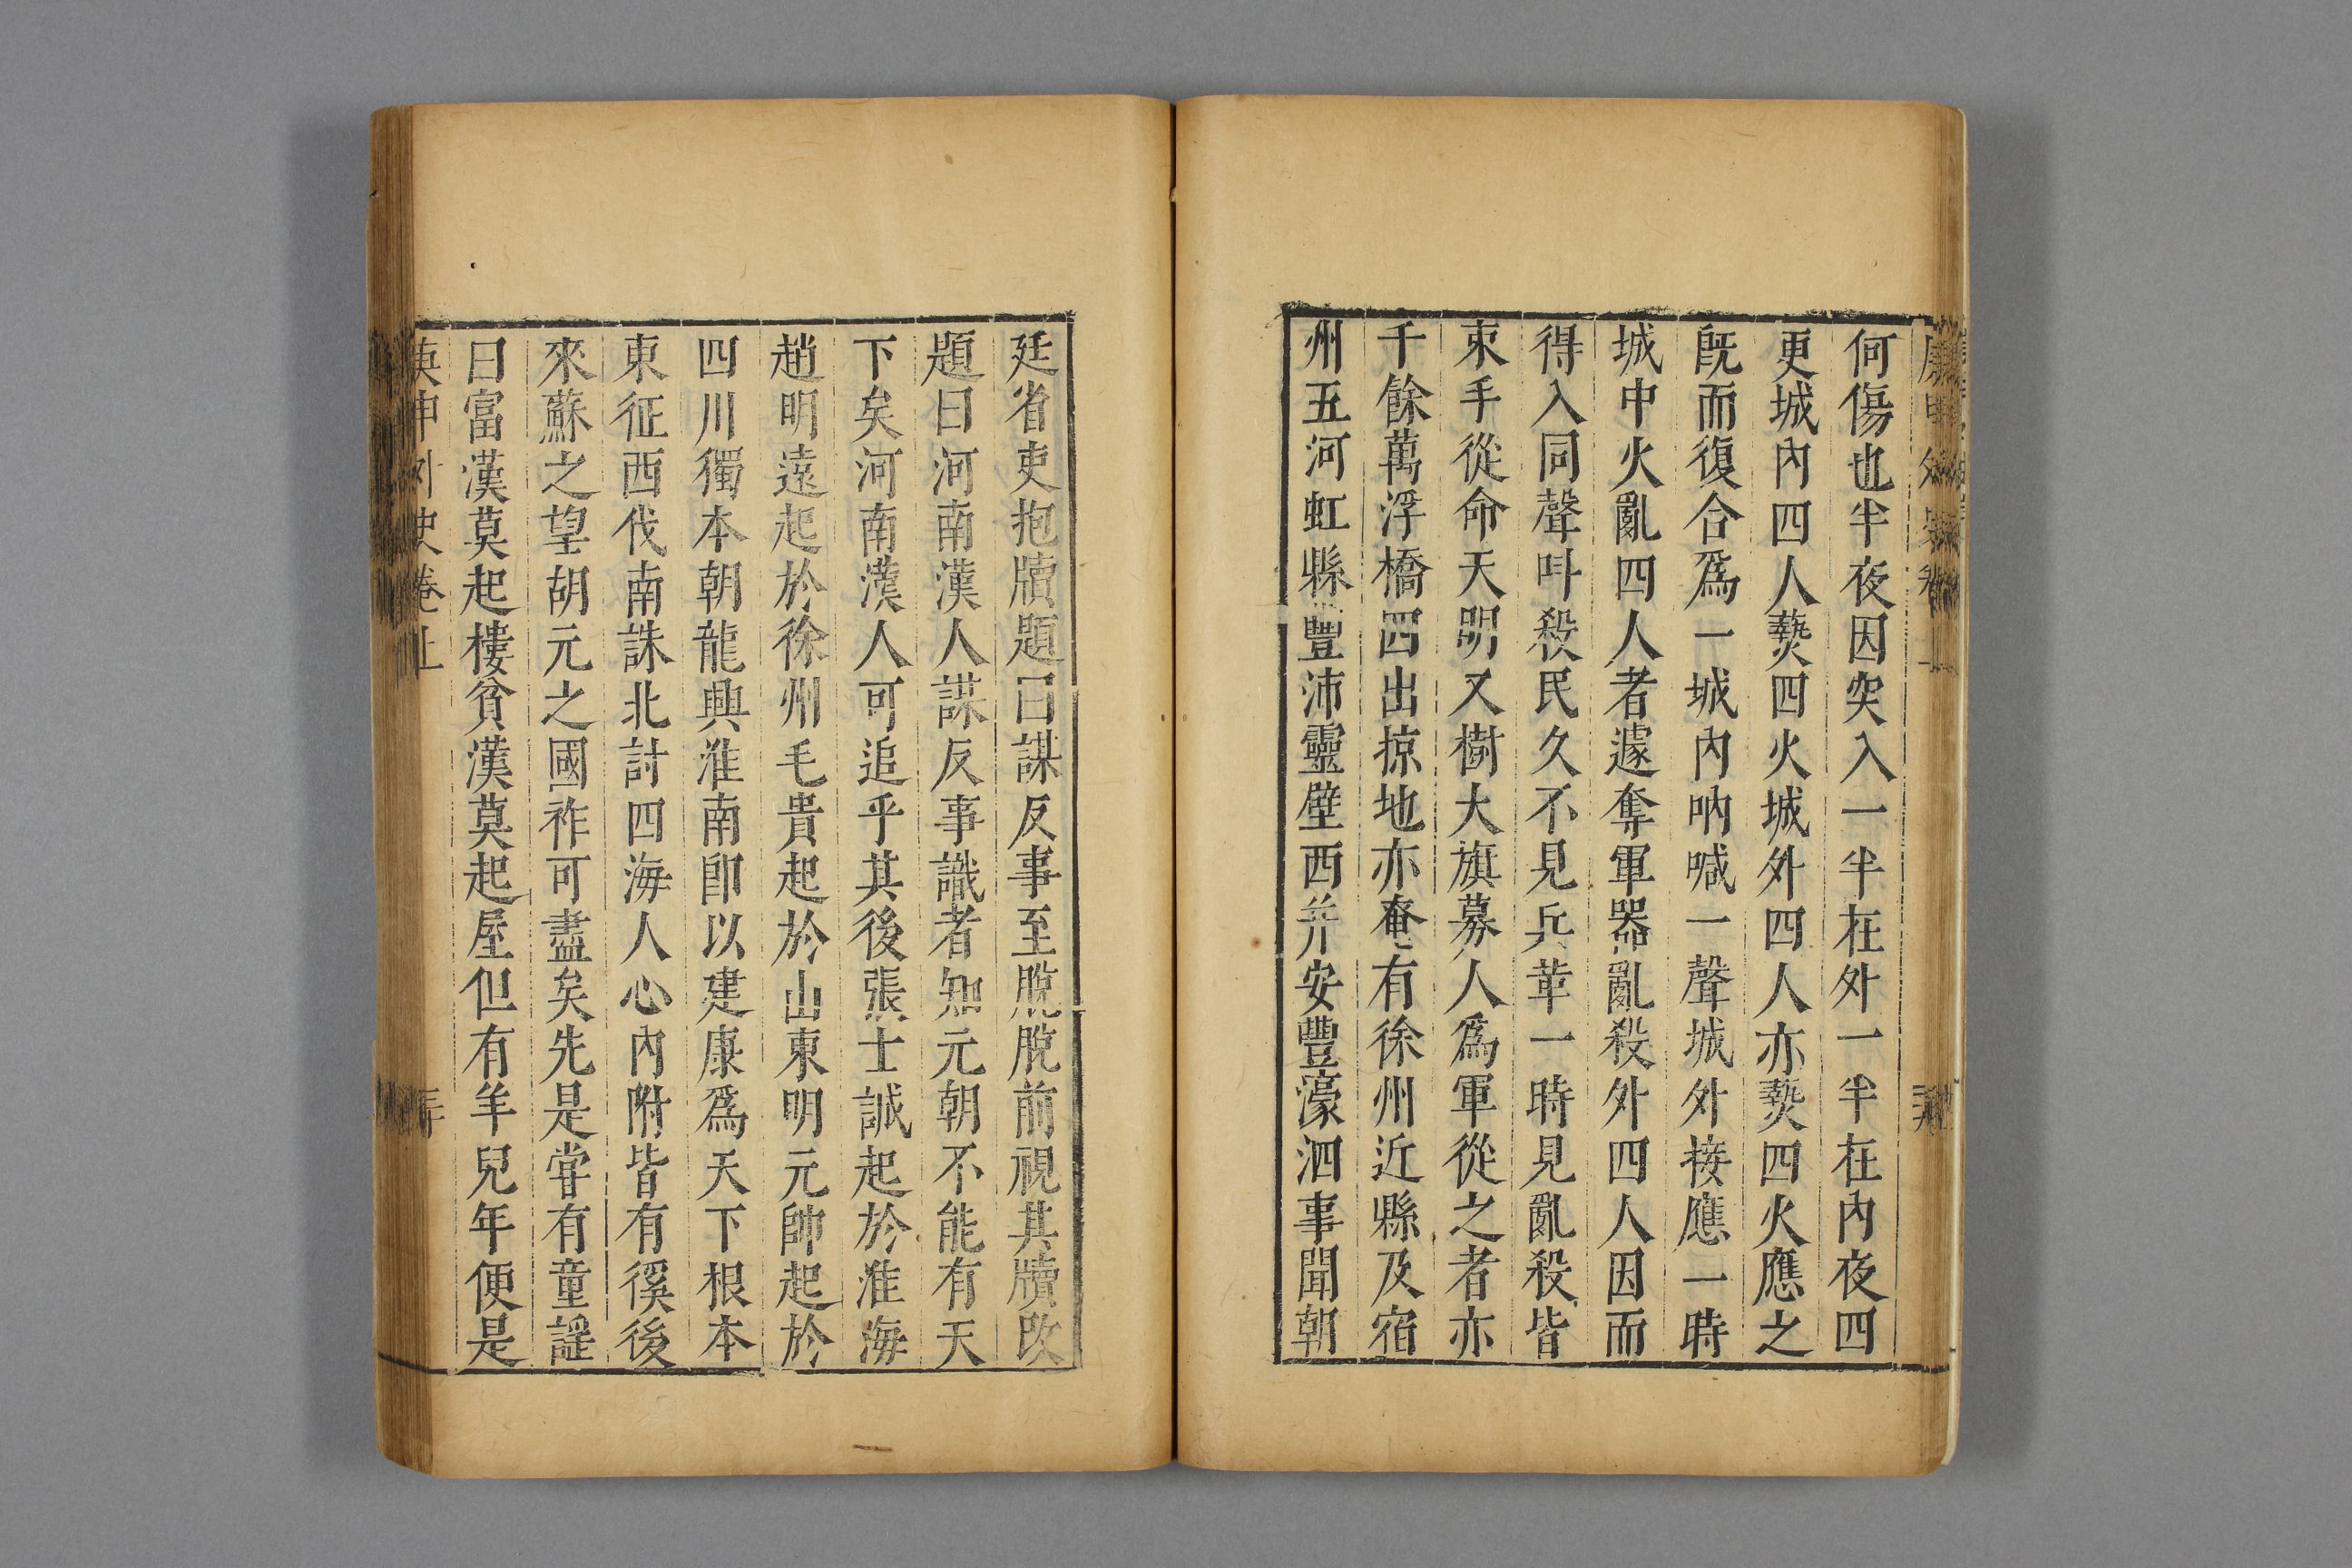 何傷也半夜因突入一半在外一半在內夜四
更城內四人爇四火城外四人亦爇四火應之
旣而復合爲一城內吶喊一聲城外接應一時
城中火亂四人者遽奪軍器亂殺外四人因而
得入同聲呌殺民久不見兵革一時見亂殺皆
束手從命天明又樹大旗募人爲軍從之者亦
千餘萬浮橋四出掠地亦奄有徐州近縣及宿
州五河虹縣豐沛靈壁西并安豐濠泗事聞朝
廷省吏抱牘題曰謀反事至脫脫前視其牘改
題曰河南漢人謀反事識者知元朝不能有天
下矣河南漢人可追乎其後張士誠起於淮海
趙明遠起於徐州毛貴起於山東明元帥起於
四川獨本朝龍興淮南卽以建康爲天下根本
東征西伐南誅北討四海人心內附皆有徯後
來蘇之望胡元之國祚可盡矣先是甞有童謡
曰富漢莫起樓貧漢莫起屋但有羊兒年便是
庚申外史卷上